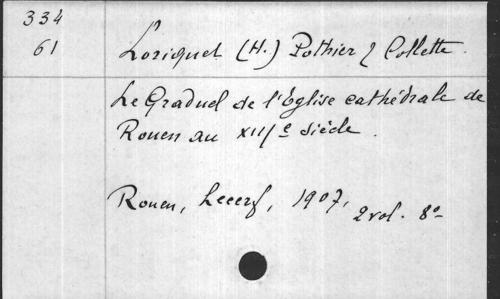 334
61 Loriquet (H.) Pothier & Collette.
Le Graduel de l'Eglise cathédrale de
Rouen au XIIIe siècle.
Rouen, Lecerf, 1907, 2 vol. 8º